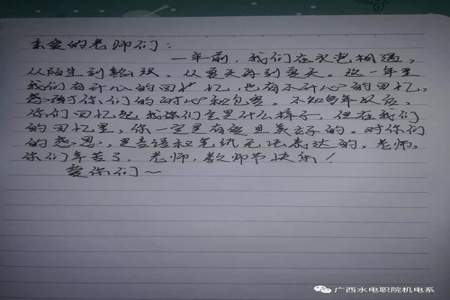 亲爱的老师们：
一年前，我们在水电相遇，
从陌生到熟络。从夏天再到夏天。这一年里
我们有开心的回忆，也有不开心的回忆，
你们的耐心和包容。不知多年以后，
你们回忆起我们会是什么样子，但在我们
的回忆里，你一定是最美的。对你们
的感恩，是言语和笔纸无法表达的。老师，
你们辛苦了，老师，教师节快乐！
爱你们～
广西水电职院机电系